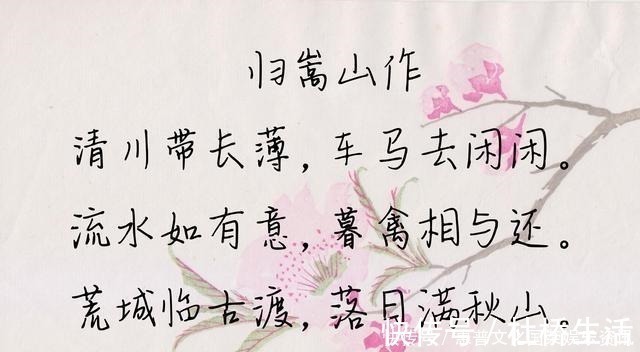 归嵩山作
清川带长薄,车马去闲闲。
流水如有意,暮禽相与还。
荒城临古渡,落日满秋山。
快传号/社杯生活